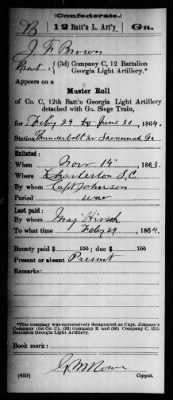 Confederate.
B 12 Batt'n L. Art'y. Ga.
J F Brown
Pvat., (3d) Company C, 12 Battalion
Georgia Light Artillery.*
Appears on a
Muster Roll
of Co. C, 12th Batt'n Georgia Light Artillery
detached with Ga. Siege Train,
for Feby 29 to June 30, 1864.
Station Thunderbolt nr Savannah Ga
Enlisted:
When Nov 14, 1863.
Where Charleston S.C.
By whom Capt Johnson
Period war
Last paid:
By whom Maj Hirsch
To what time Feby 29, 1864.
Bounty paid $ 100; due $ 100
Present or absent Present
Remarks:
*This company was successively designated as Capt. Johnson's
Company (1st Co. C), (3d) Company E and (3d) Company C, 12th
Battalion Georgia Light Artillery.
Book mark:
(650) Copyist.